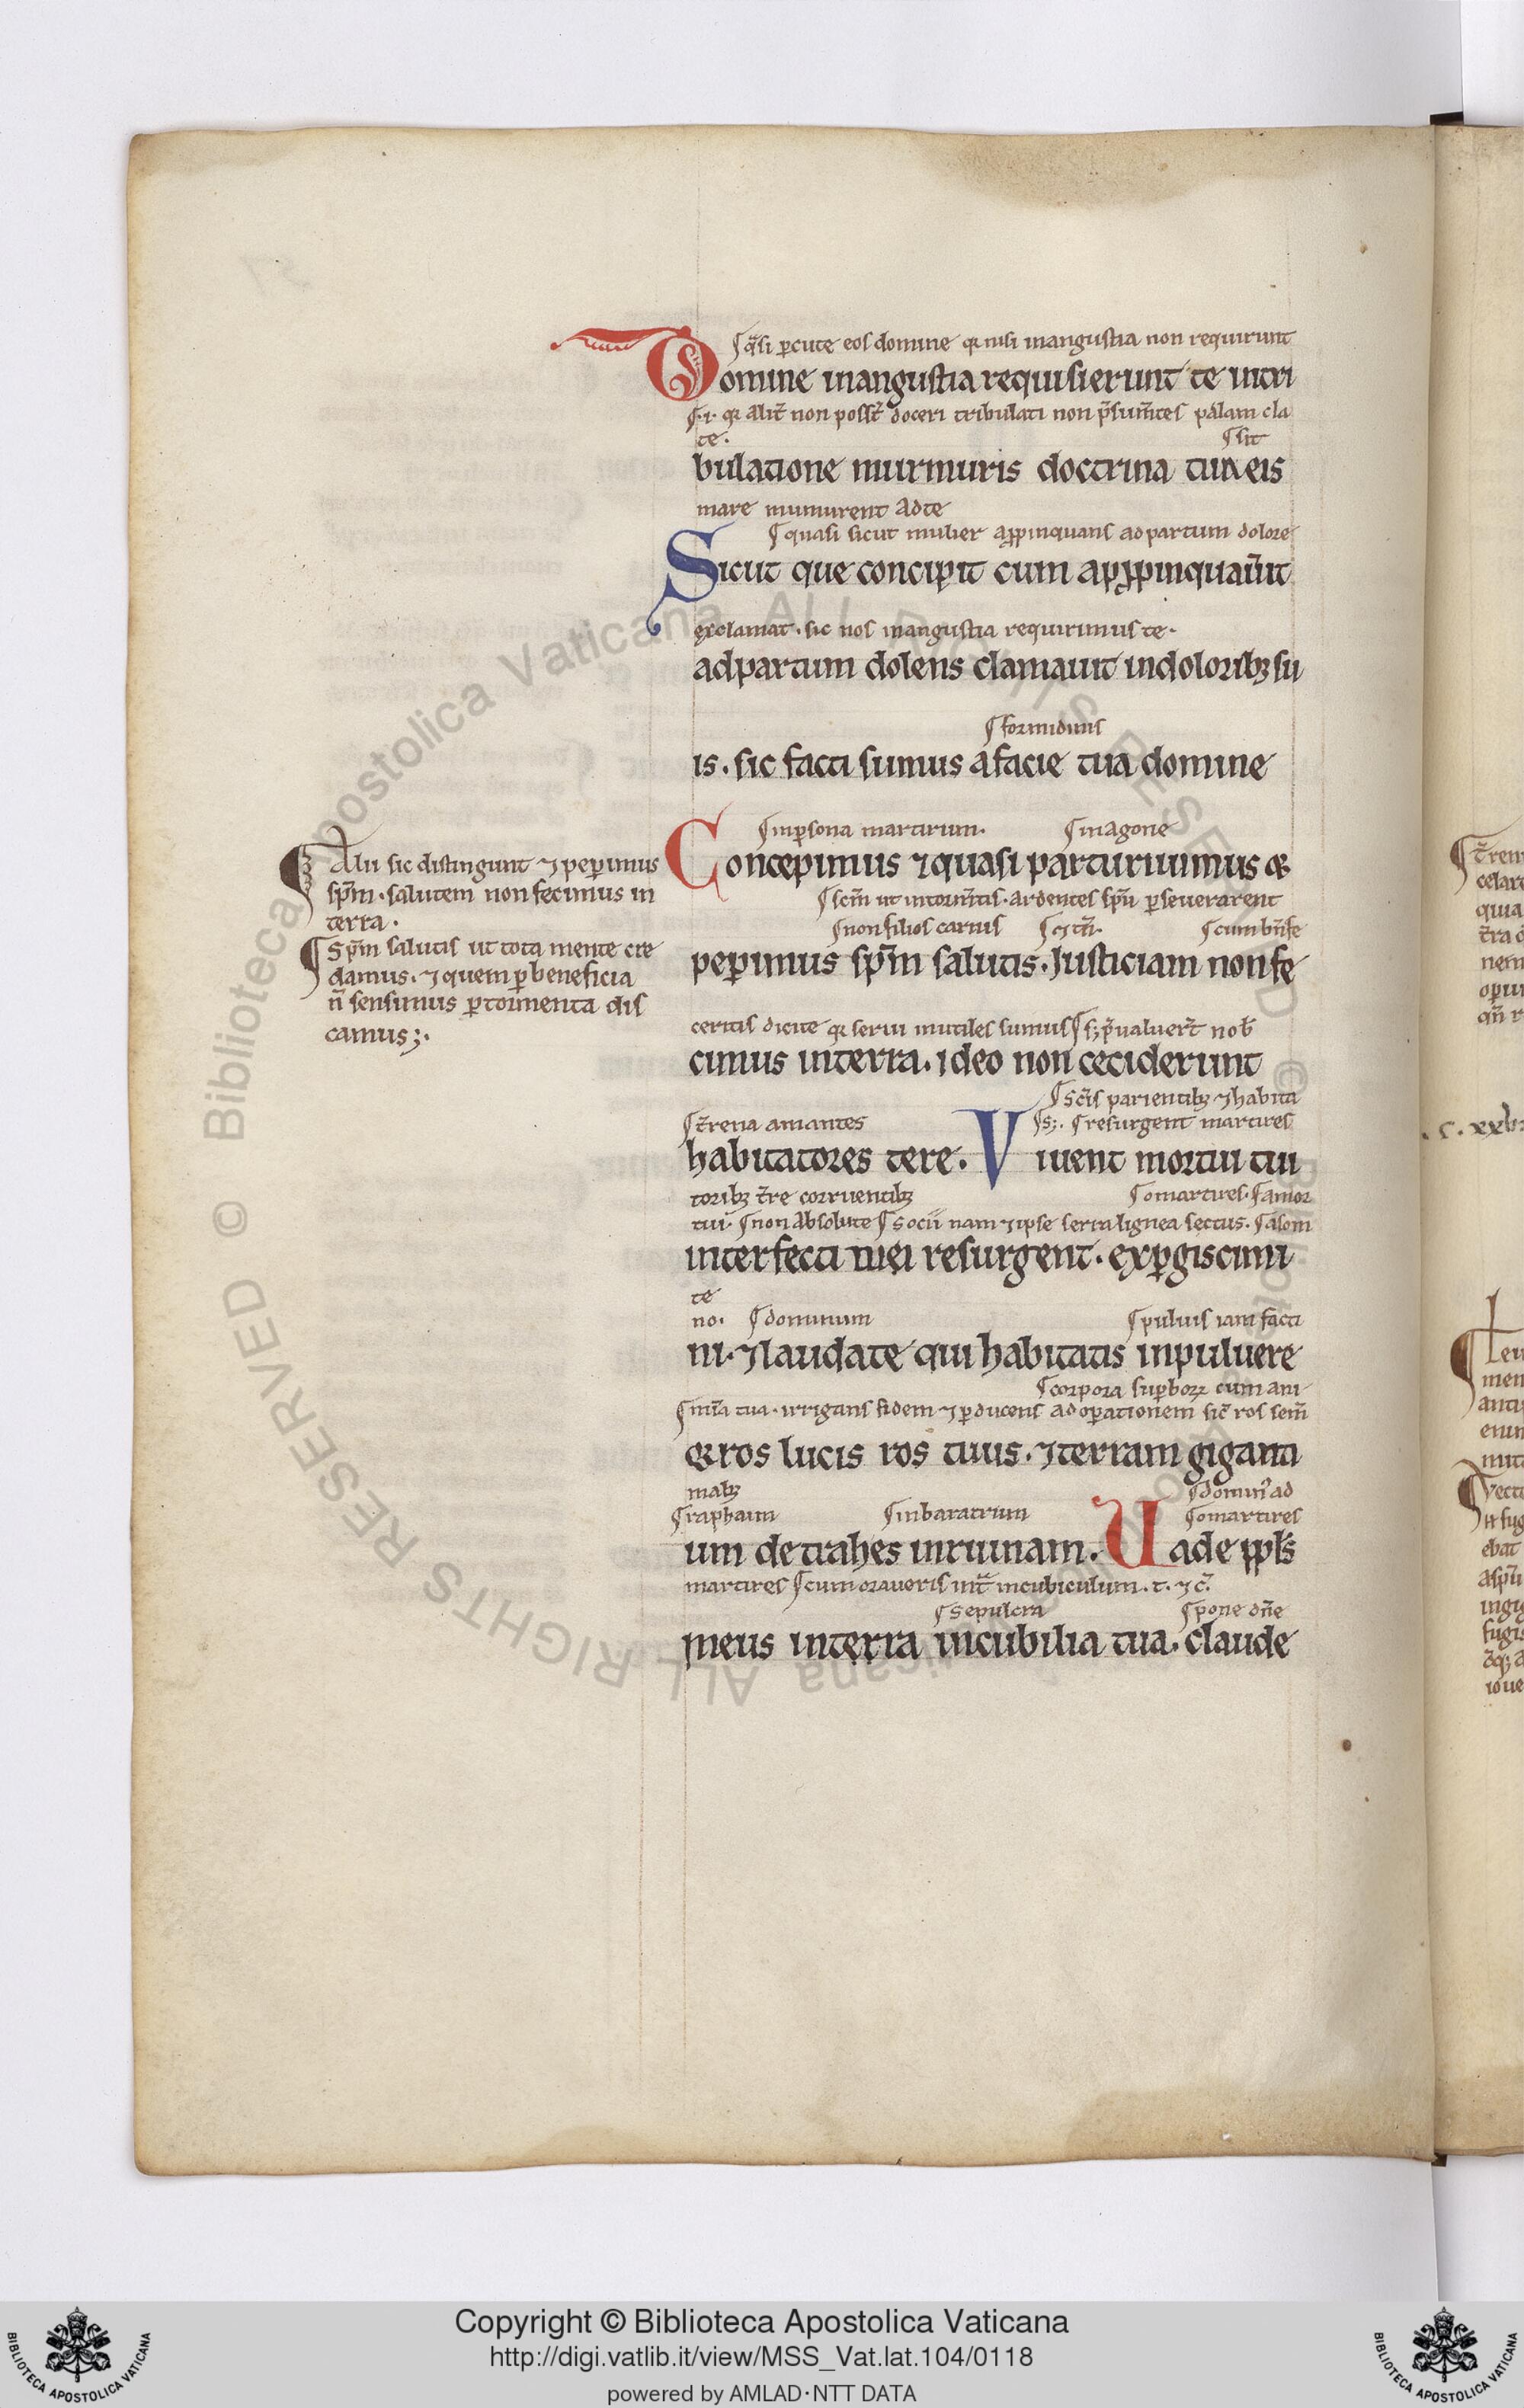 ¶ q̅si ꝑcute eos domine q̅ nisi inangustia non requirunt
Domine inangustia requisierunt te intri
¶ .i. q̅ alit̅ non poss̅t doceri tribulati non p̅sum̅tes palam cla
te.
¶ sit
bulatione murmuris doctrina tua eis
mare mumurent adte
¶ quasi sicut mulier aꝓpinquans adpartum dolore
Sicut que concipit cum apꝓpinquau̅it
exclamat. sic nos inangustia requirimus te.
adpartum dolens clamauit indoloribꝫ su
¶ formidinis
is. sic facti sumus afacie tua domine
¶ inꝑsona martirum. ¶ inagone
Concepimus ⁊ quasi parturiuimus ⁊
¶ sc̅m ut intorm̅tis. ardentes sp̅u ꝑseuerarent
¶ non filios carnis ¶ ⁊ t̅n. ¶ cum bn̅fe
peꝑimus sp̅m salutis. Iusticiam non fe
ceritis dicite q̅ serui inutiles sumus ¶ sꝫ p̅ualuer̅t nob̅
cimus interra. ideo non ceciderunt
¶ sc̅is parientibꝫ ⁊ habita
¶ t̅rena amantes ¶ sꝫ. ¶ resurgent martires
habitatores tere. Viuent mortui tui
toribꝫ t̅re corruentibꝫ ¶ o martires. ¶ amor
tui. ¶ non absolute ¶ socii nam ⁊ ipse serra lignea sectus. ¶ asom
interfecti mei resurgent. exꝑgiscimi
te
no. ¶ dominum ¶ puluis iam facti
ni. ⁊ laudate qui habitatis inpuluere
¶ corpora suꝑboꝝ cum ani
¶ mi̅a tua. irrigans fidem ⁊ ꝑducens adoꝑationem sic̅ ros sem̅
q̅ ros lucis ros tuus. ⁊ terram giganti
mabꝫ ¶ domin᷒ ad
¶ raphaim ¶ inbaratrum ¶ o martires
um detrahes inruinam. Uade pplꝰs
martires ¶ cum oraueris int̅ incubiculum. t. ⁊ c̅.
¶ sepulcra ¶ pone dn̅e
meus interra incubilia tua. claude
¶ Alii sic distingunt ⁊ peꝑimus
sp̅m. salutem non fecimus in
terra.
¶ Sp̅m salutis ut tota mente cre
damus. ⁊ quem ꝑ beneficia
n̅ sensimus ꝑ tormenta dis
camus;.
Copyright © Biblioteca Apostolica Vaticana
http://digi.vatlib.it/view/MSS_Vat.lat.104/0118
powered by AMLAD·NTT DATA
BIBLIOTECA APOSTOLICA VATICANA
BIBLIOTECA APOSTOLICA VATICANA